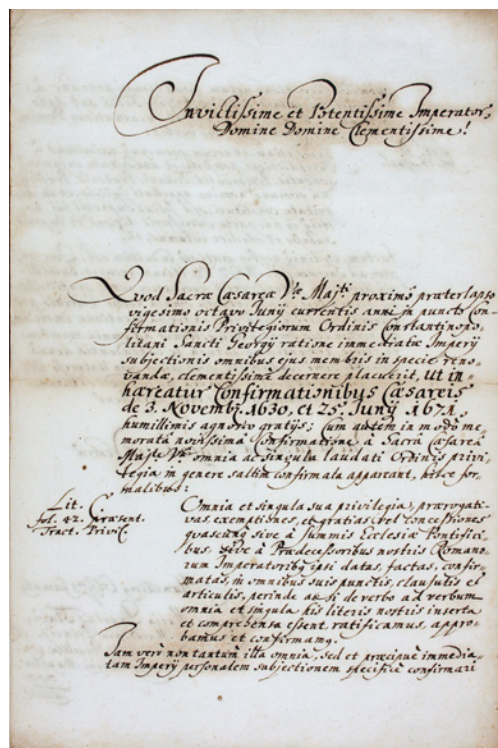 Invictissime et Potentissime Imperator,
Domine Domine Clementissime!
Quod Sacræ Cæsareæ Vræ Majti proximò præterlapso
vigesimo octavo Junÿ currentis anni in puncto Con-
firmationis Privilegiorum Ordinis Constantinopo-
litani Sancti Georgÿ ratione immediatæ Imperÿ
subjectionis omnibus ejus membris in specie reno-
vandæ, clementissimè decernere placuerit, ut in-
hæreatur Confirmationibus Cæsareis
de 3. Novemb. 1630, et 25. Junÿ 1671,
humillimis agnosco gratÿs; Cum autem in modò me-
morata novissima Confirmatione à Sacra Cæsarea
Majte Vra omnia ac singula laudati Ordinis privi-
legia in genere saltim confirmata appareant, hisce for-
malibus:
Lit. C.
fol. 22. præsent.
Tract. Privil.
Omnia et singula sua privilegia, prærogati-
vas, exemptiones, et gratias vel concessiones
quascunq sive à summis Ecclesiæ Pontifici-
bus, sive à Prædecessoribus nostris Romano-
rum Imperatoribq ipsi datas, factas, confir-
matas, in omnibus suis punctis, clausulis et
articulis, perinde ac si de verbo ad verbum
omnia et singula his literis nostris inserta
et comprehensa essent, ratificamus, appro-
bamus et confirmamq.
Jam verò non tantum illa omnia, sed et præcipuè immedia-
tam Imperÿ personalem subjectionem specificè confirmari